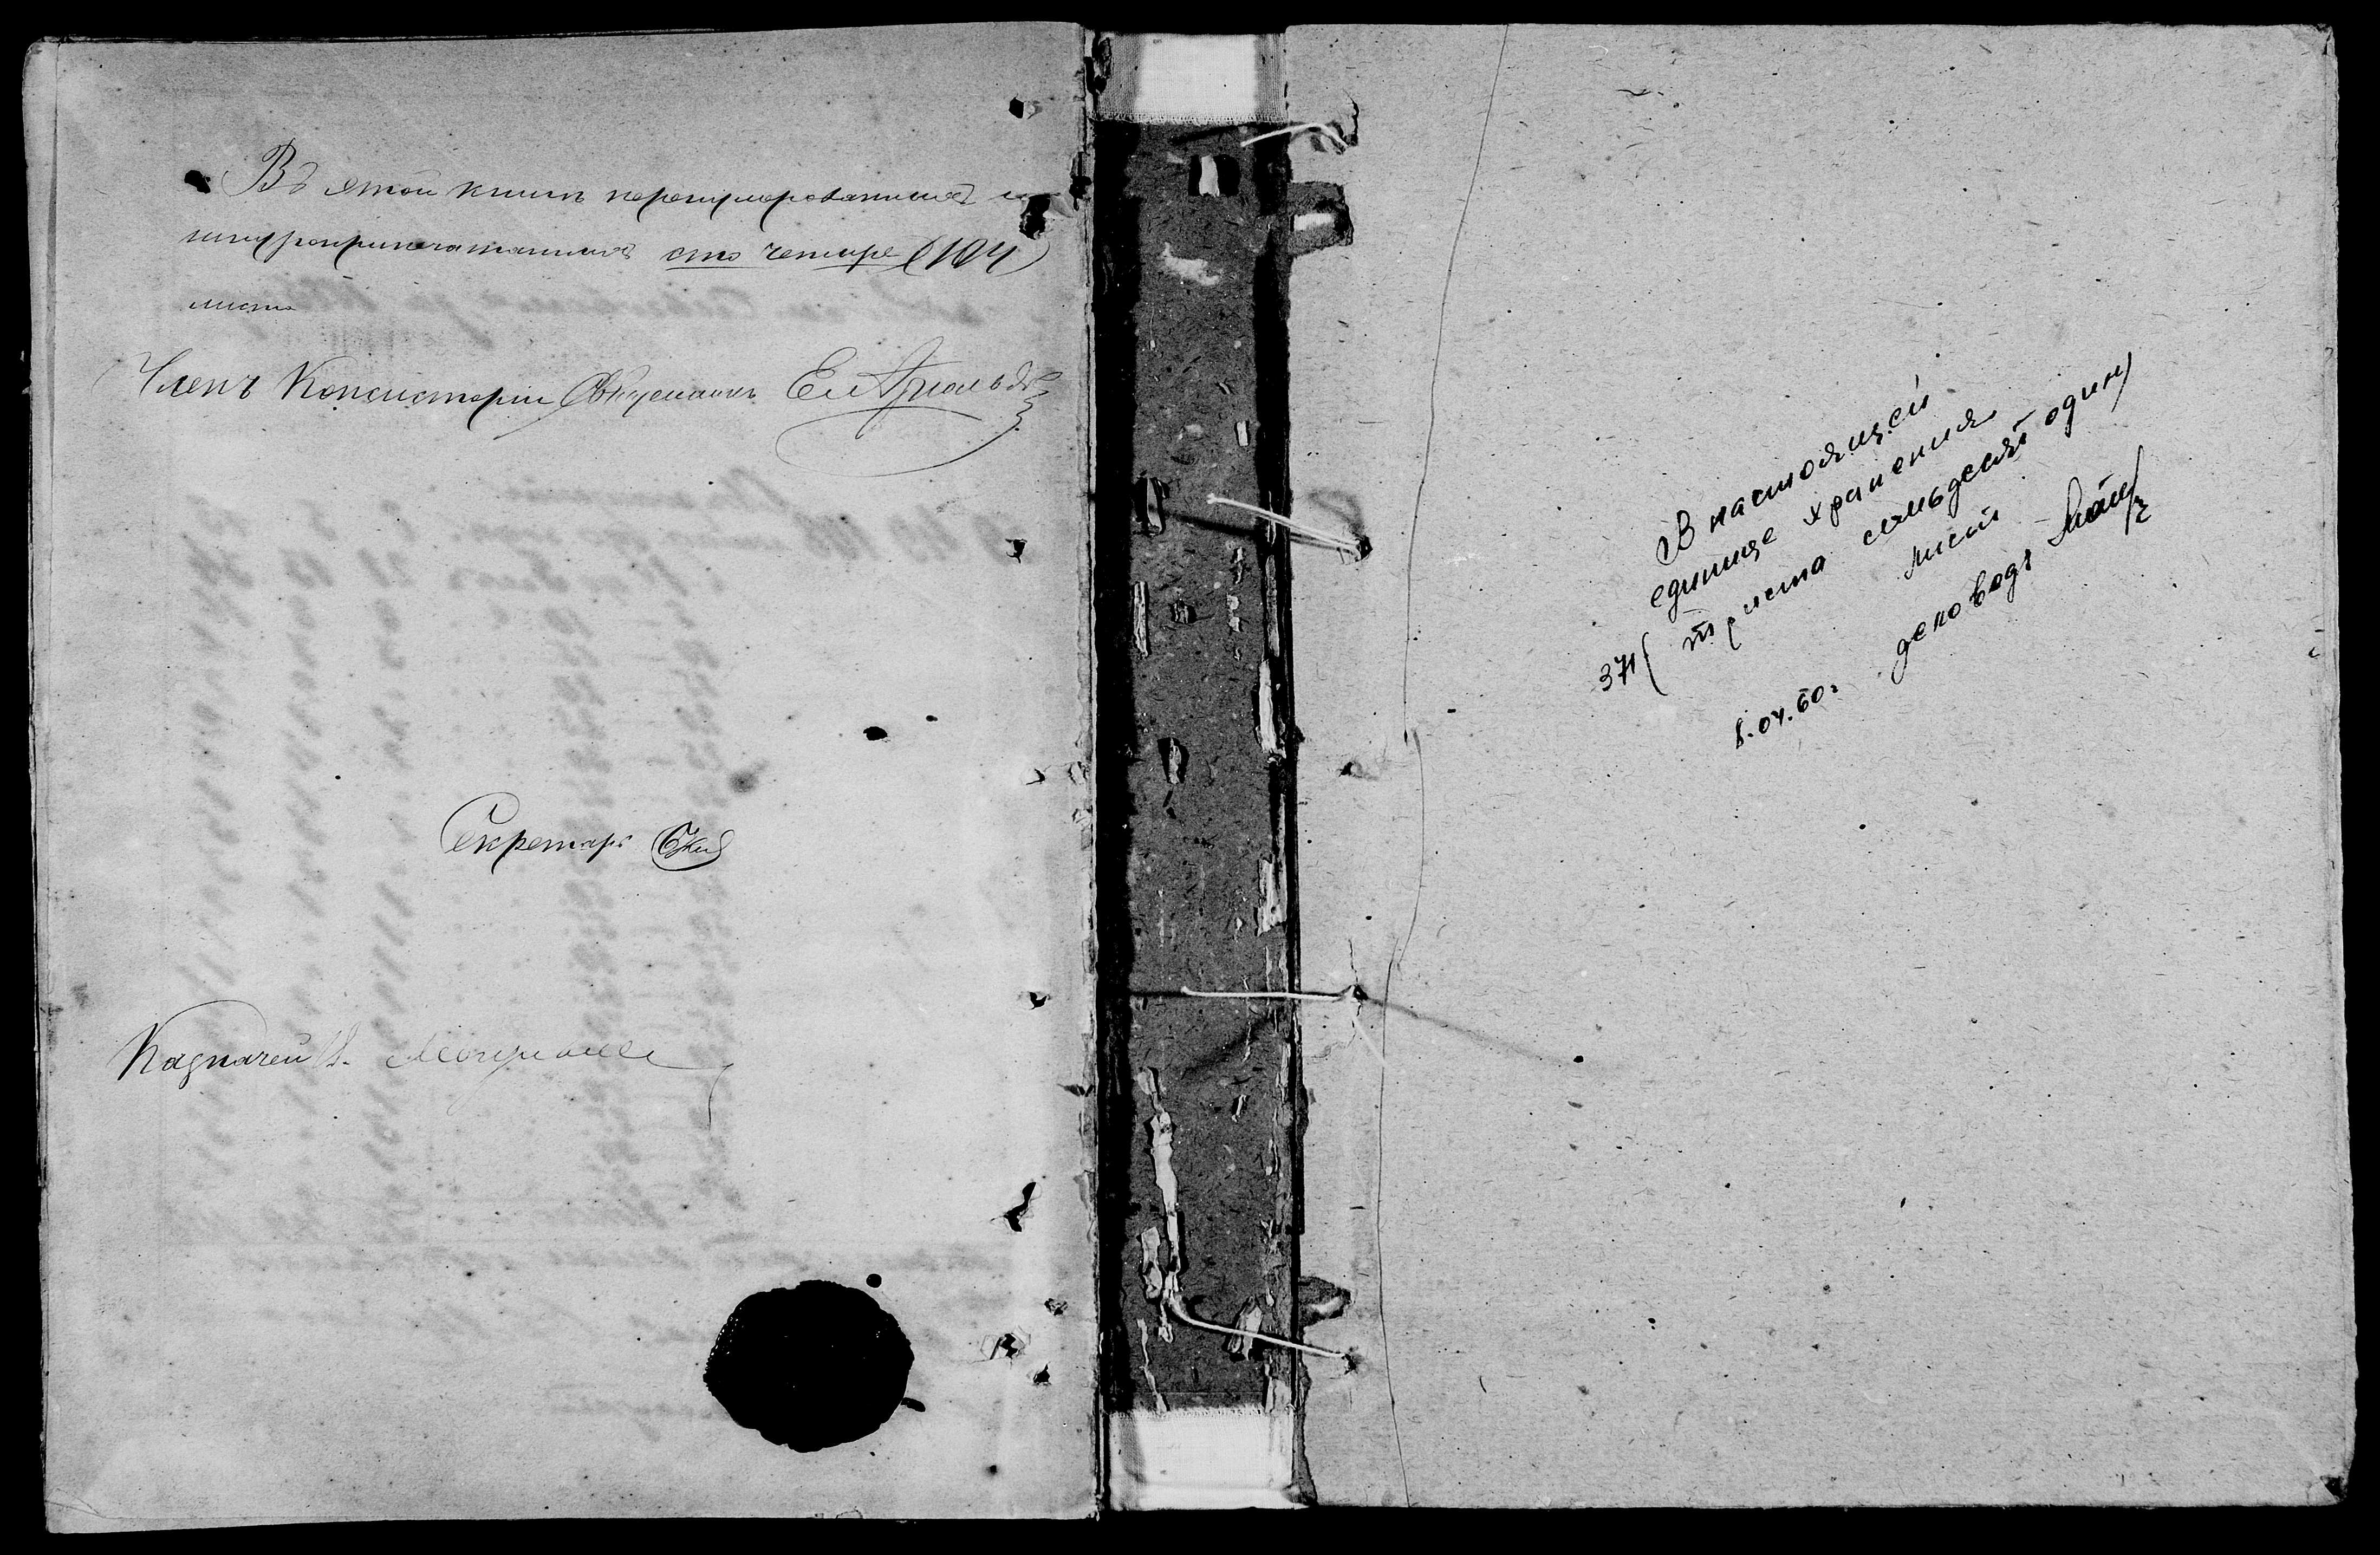 Въ этой книгѣ перенумерованныхъ и
шнуроприпечатанныхъ сто четыре (104)
листа
Членъ Консисторіи Священникъ
Секретарь
Казначей
В настоящей
единице хранения
371 (триста семьдесят один)
лист
8.04.60г деловод